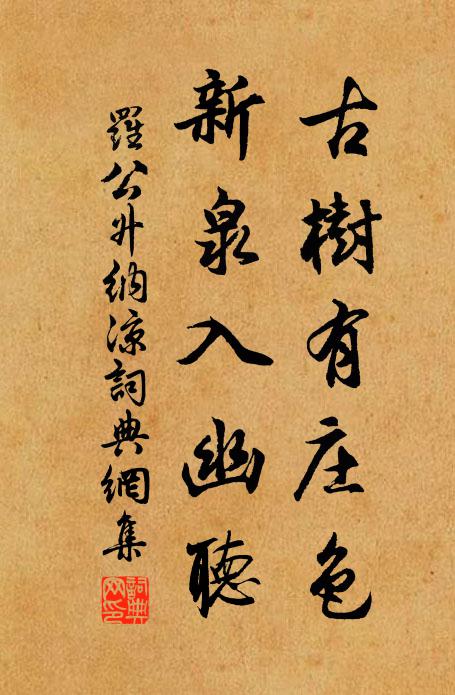 古樹有庄色
新泉入幽聽
羅公升納涼詞典網集
詞典網印